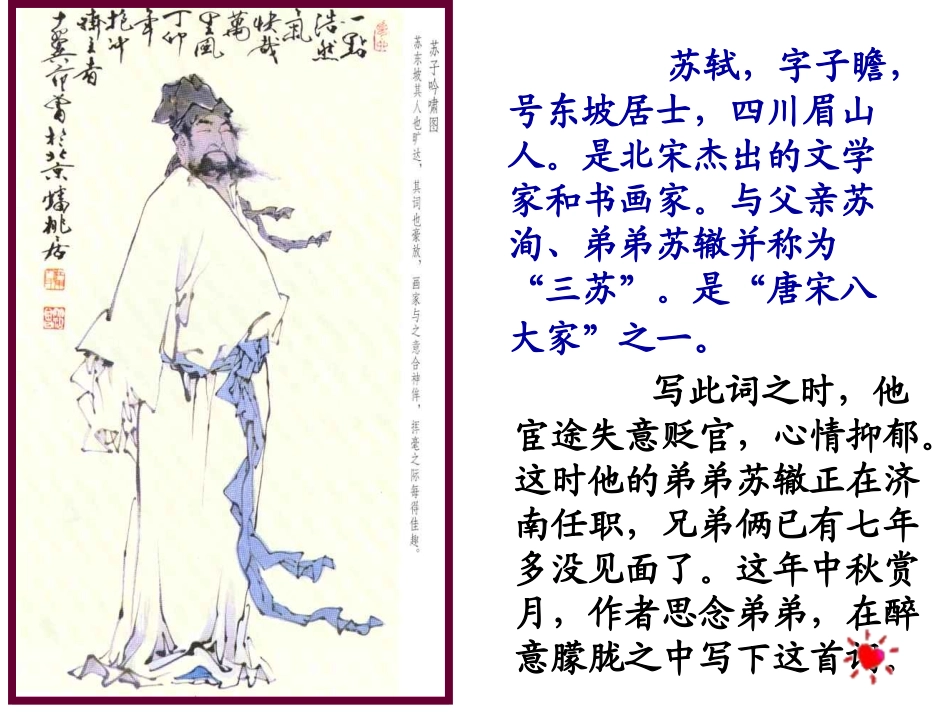 一點
浩然
氣
快哉
萬
里風
丁卯
年
抱冲
齋主者
十翼范曾於北京蟠桃居
苏子吟嘯图
苏东坡其人也旷达，其词也豪放，画家与之意合神侔，挥毫之际每得佳趣。
苏轼，字子瞻，
号东坡居士，四川眉山
人。是北宋杰出的文学
家和书画家。与父亲苏
洵、弟弟苏辙并称为
“三苏”。是“唐宋八
大家”之一。
写此词之时，他
宦途失意贬官，心情抑郁。
这时他的弟弟苏辙正在济
南任职，兄弟俩已有七年
多没见面了。这年中秋赏
月，作者思念弟弟，在醉
意朦胧之中写下这首词。